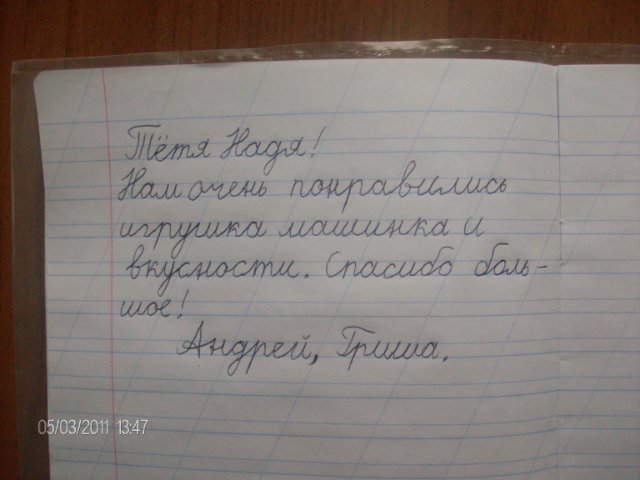 Тётя Надя!
Нам очень понравились
игрушка машинка и
вкусности. Спасибо боль-
шое!
Андрей, Гриша.
05/03/2011 13:47